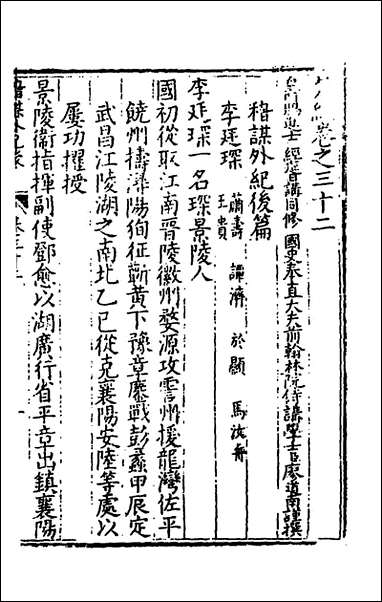 卷之三十二
賜進士經筵講同修國史奉直大夫前翰林院侍講學士臣廖道南謹撰
稽謀外紀後篇
李廷琛 蕭壽 譚濟 於顯 馬汝舟
王貴
李廷琛一名琛景陵人
國初從取江南晋陵徽州婺源攻雪州援龍灣佐平
饒州擣潯陽徇征蘄黄下豫章鏖戰彭蠡甲辰定
武昌江陵湖之南北乙巳從克襄陽安陸等處以
屡功擢授
景陵衛指揮副使鄧愈以湖廣行省平章出鎮襄陽